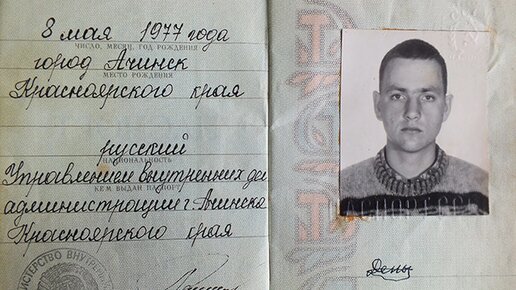 8 мая 1977 года
ЧИСЛО, МЕСЯЦ, ГОД РОЖДЕНИЯ
город Ачинск
МЕСТО РОЖДЕНИЯ
Красноярского края
русский
НАЦИОНАЛЬНОСТЬ
Управлением внутренних дел
КЕМ ВЫДАН ПАСПОРТ
администрации г. Ачинска
Красноярского края
МИНИСТЕРСТВО ВНУТРЕН